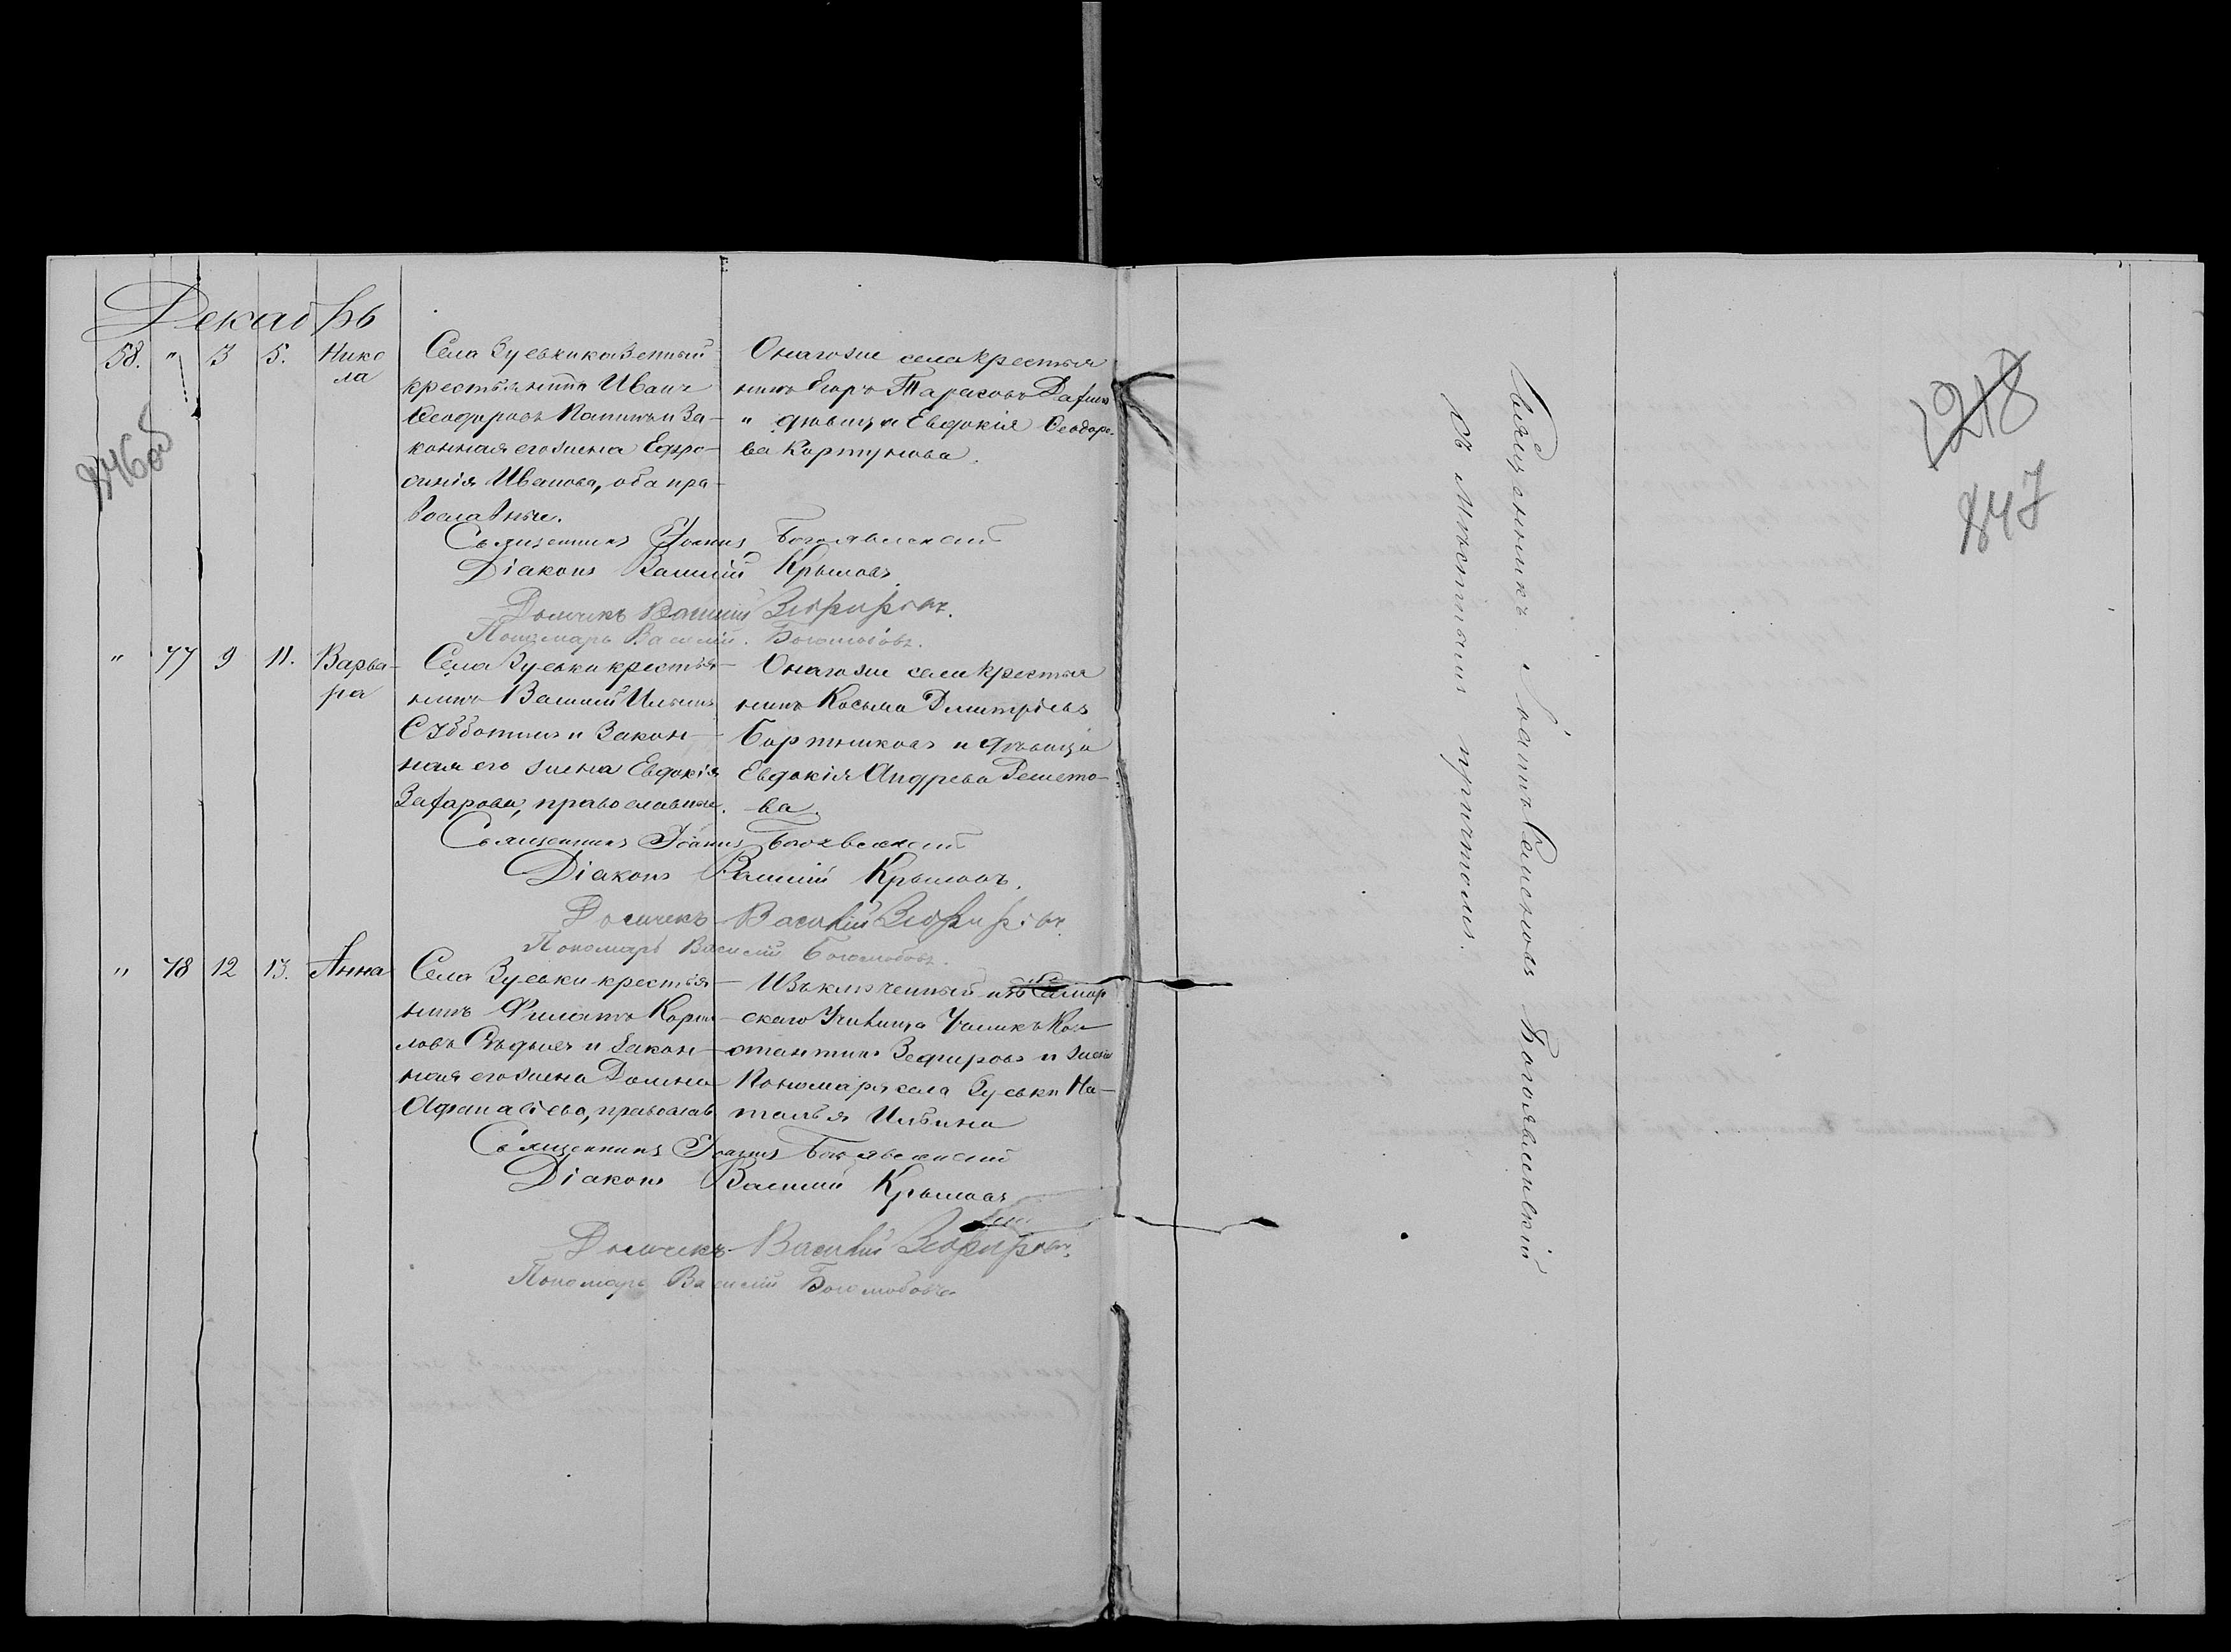 Декабрь
846об
58. " 3 5. Нико
ла
Села Зуевки казенный
крестьянинъ Иванъ
Ѳеодоровъ и За-
конная его жена Ефро-
синія Иванова, оба пра-
вославные.
Онагоже села крестья
нинъ Егоръ Тарасовъ
" дѣвица Евдокія Ѳеодоро-
ва Кортунова.
Священникъ Іоаннъ Богоявленскій
Діаконъ Василій Крыловъ
Дьячекъ Василій Зефировъ.
Пономарь Василій Боголюбовъ.
" 77 9 11. Варва-
ра
Села Зуевки крестья-
нинъ Василій Ильинъ
Субботинъ и закон-
ная его жена Евдокія
Захарова, православные.
Онагоже села крестья
нинъ Косьма Димитріевъ
Бортниковъ и дѣвица
Евдокія Андрева Решето-
ва.
Священникъ Іоаннъ Богоявленскій
Діаконъ Василій Крыловъ.
Дьячекъ Василій Зефировъ.
Пономарь Василій Боголюбовъ.
" 78 12 13. Анна
Села Зуевки крестья-
нинъ Филатъ Корни-
ловъ и закон-
ная его жена Домна
Афанасіева, православ
Изключенный изъ Самар
скаго Училища Ученикъ Кон
стантинъ Зефировъ и жена
Пономаря села Зуевки На-
талья Ильина
Священникъ Іоаннъ Богоявленскій
Діаконъ Василій Крыловъ
Дьячекъ Василій Зефировъ.
Пономарь Василій Боголюбовъ
Священникъ Іоаннъ Богоявленскій
съ мѣстнымъ причтомъ.
1218
847